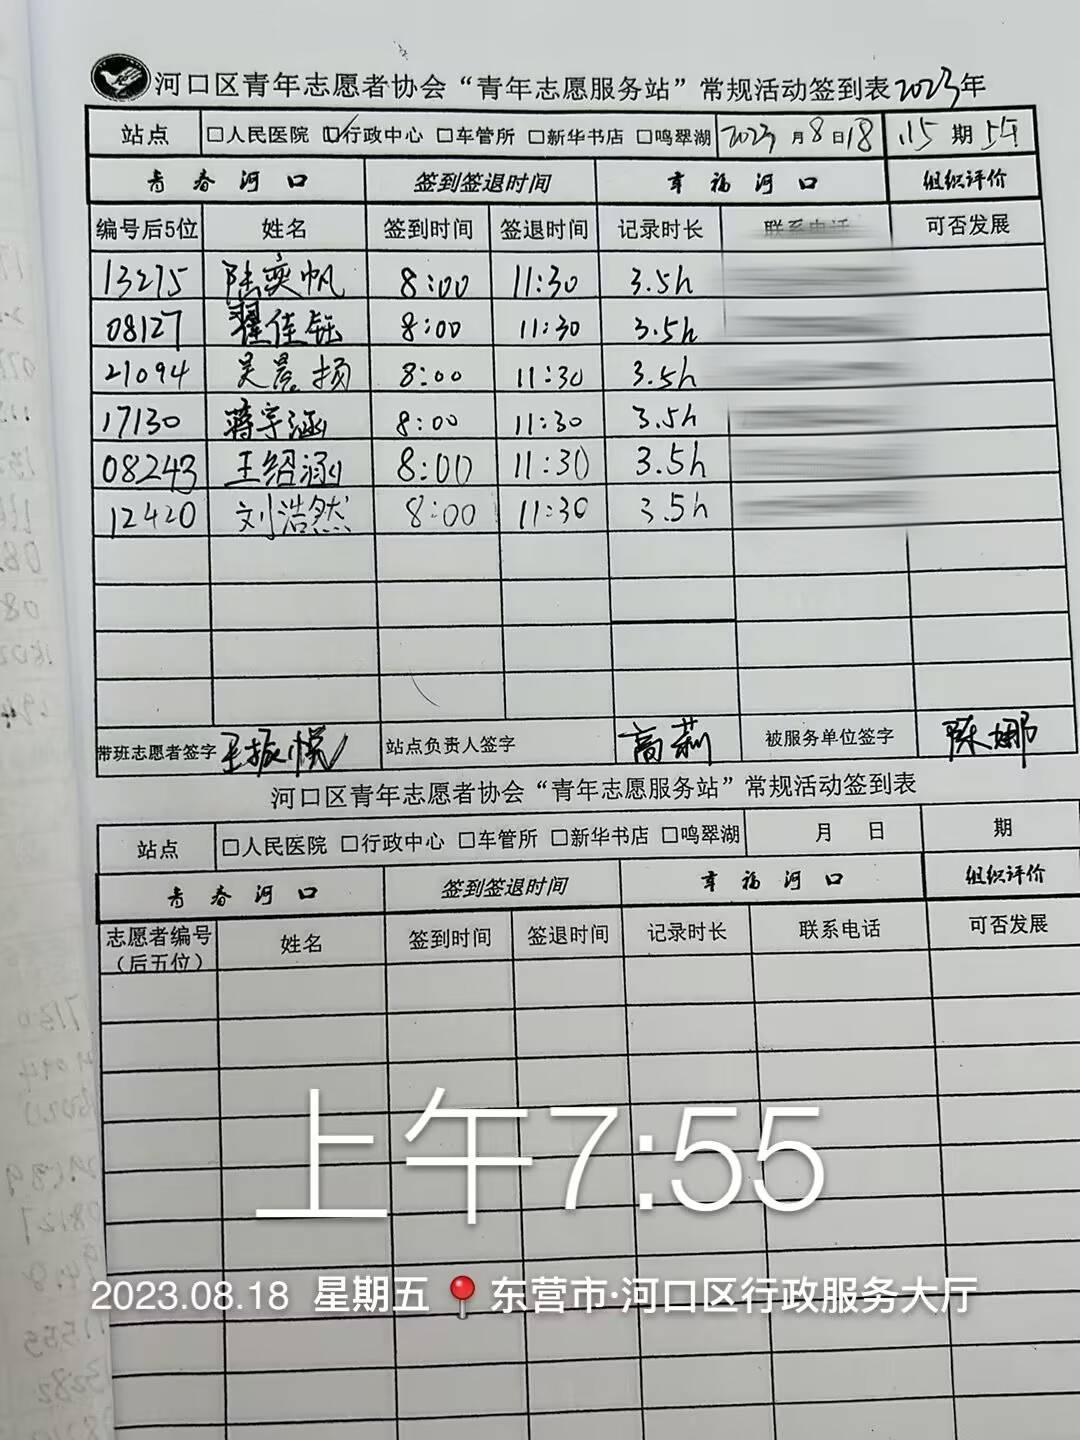 河口区青年志愿者协会“青年志愿服务站”常规活动签到表2023年
站点 □人民医院 ☑行政中心 □车管所 □新华书店 □鸣翠湖 2023月8日18 115期
青春河口 签到签退时间 幸福河口 组织评价
编号后5位 姓名 签到时间 签退时间 记录时长 联系电话 可否发展
13275 陆奕帆 8:00 11:30 3.5h
08127 翟佳钰 8:00 11:30 3.5h
21094 吴晨扬 8:00 11:30 3.5h
17130 蒋宇涵 8:00 11:30 3.5h
08243 王绍涵 8:00 11:30 3.5h
12420 刘浩然 8:00 11:30 3.5h
带班志愿者签字 王振悦 站点负责人签字 高莉 被服务单位签字 陈娜
河口区青年志愿者协会“青年志愿服务站”常规活动签到表
站点 □人民医院 □行政中心 □车管所 □新华书店 □鸣翠湖 月 日 期
青春河口 签到签退时间 幸福河口 组织评价
志愿者编号（后五位） 姓名 签到时间 签退时间 记录时长 联系电话 可否发展
上午7:55
2023.08.18 星期五 东营市·河口区行政服务大厅